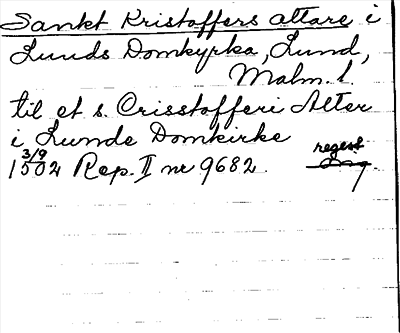 Sankt Kristoffers altare i
Lunds Domkyrka, Lund,
Malm. l.
til et s. Crisstofferi Alter
i Lunde Domkirke
3/9
1502 Rep. II nr 9682. regest